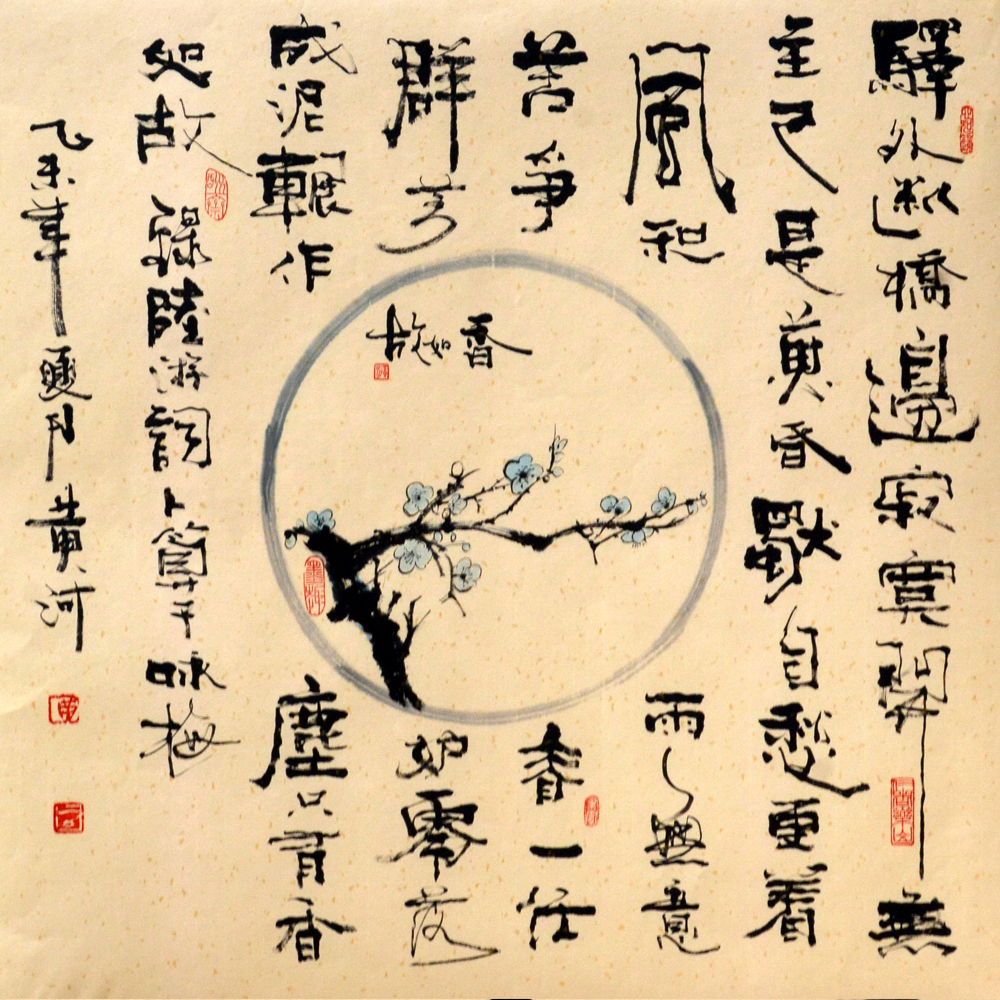 驛外斷橋邊寂寞開無
主已是黃昏獨自愁更着
風和雨〻無意
苦爭春一任
群芳妒零落
成泥輾作塵只有香
如故 錄陸游詞卜算子咏梅
乙未年夏月黃河
香如故
墨梅
黃